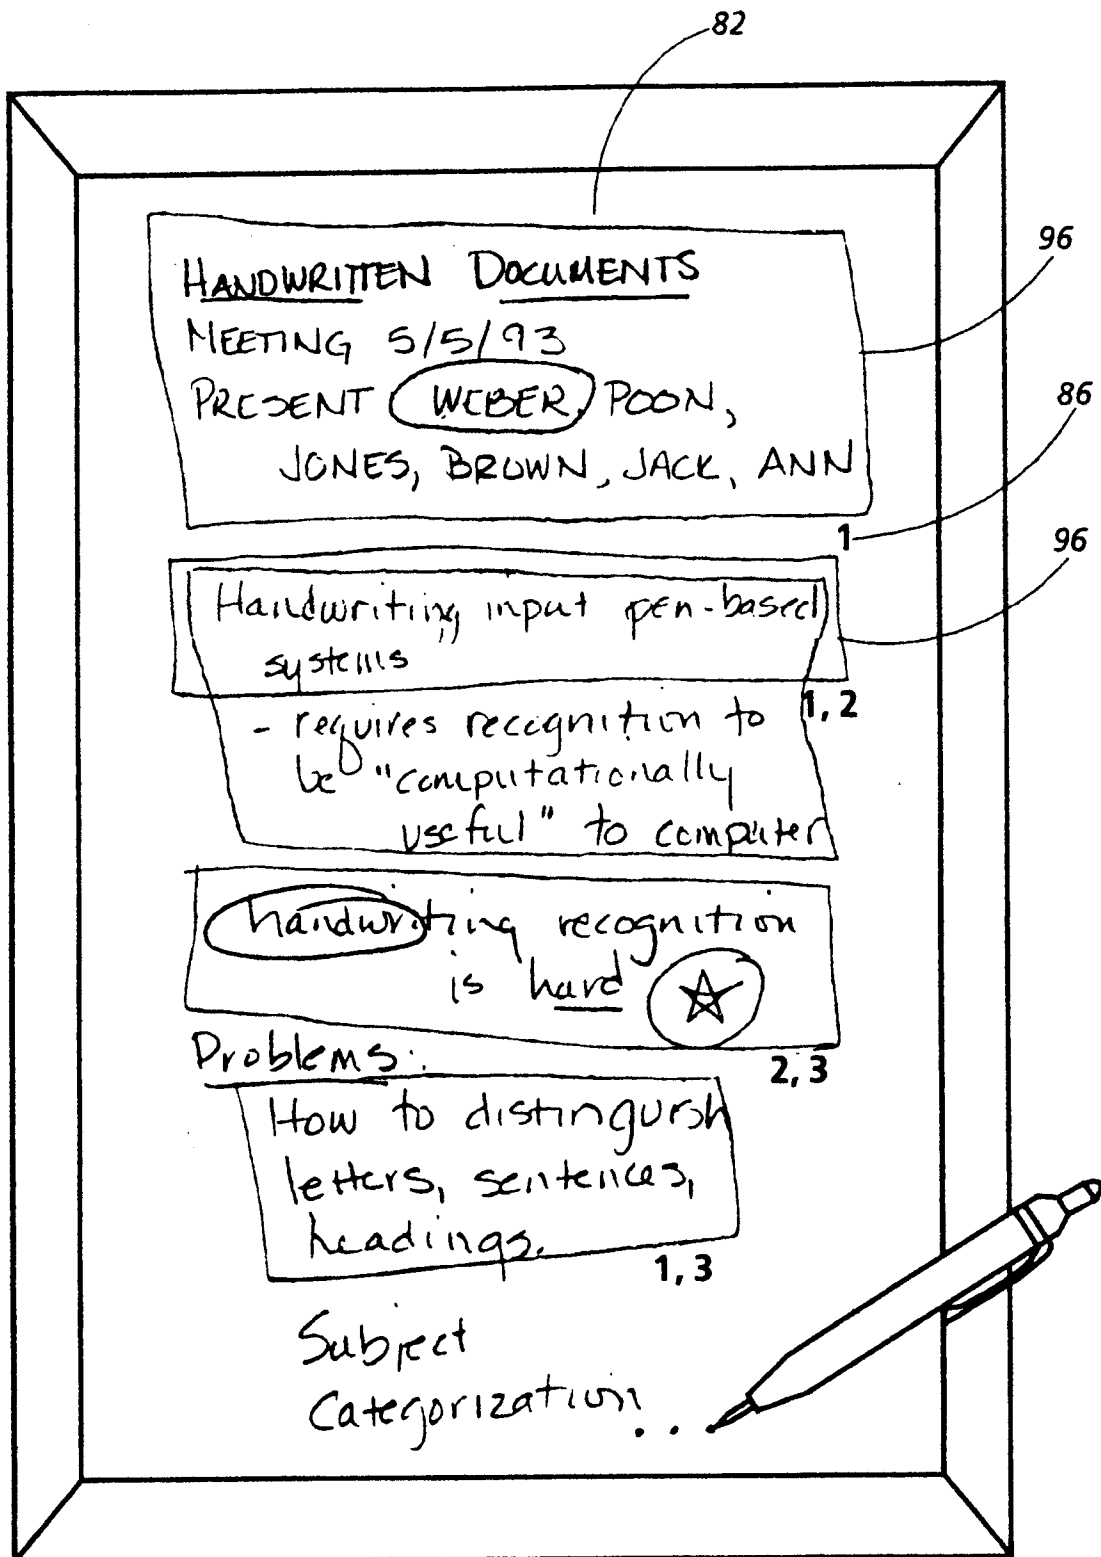 82
HANDWRITTEN DOCUMENTS
96
MEETING 5/5/93
PRESENT WEBER, POON,
86
JONES, BROWN, JACK, ANN
1
96
Handwriting input pen-based
systems"
1, 2
- requires recognition to
be "computationally
useful" to computer
handwriting recognition
is hard
Problems:
2, 3
How to distinguish
letters, sentences,
headings.
1, 3
Subject
Categorization...